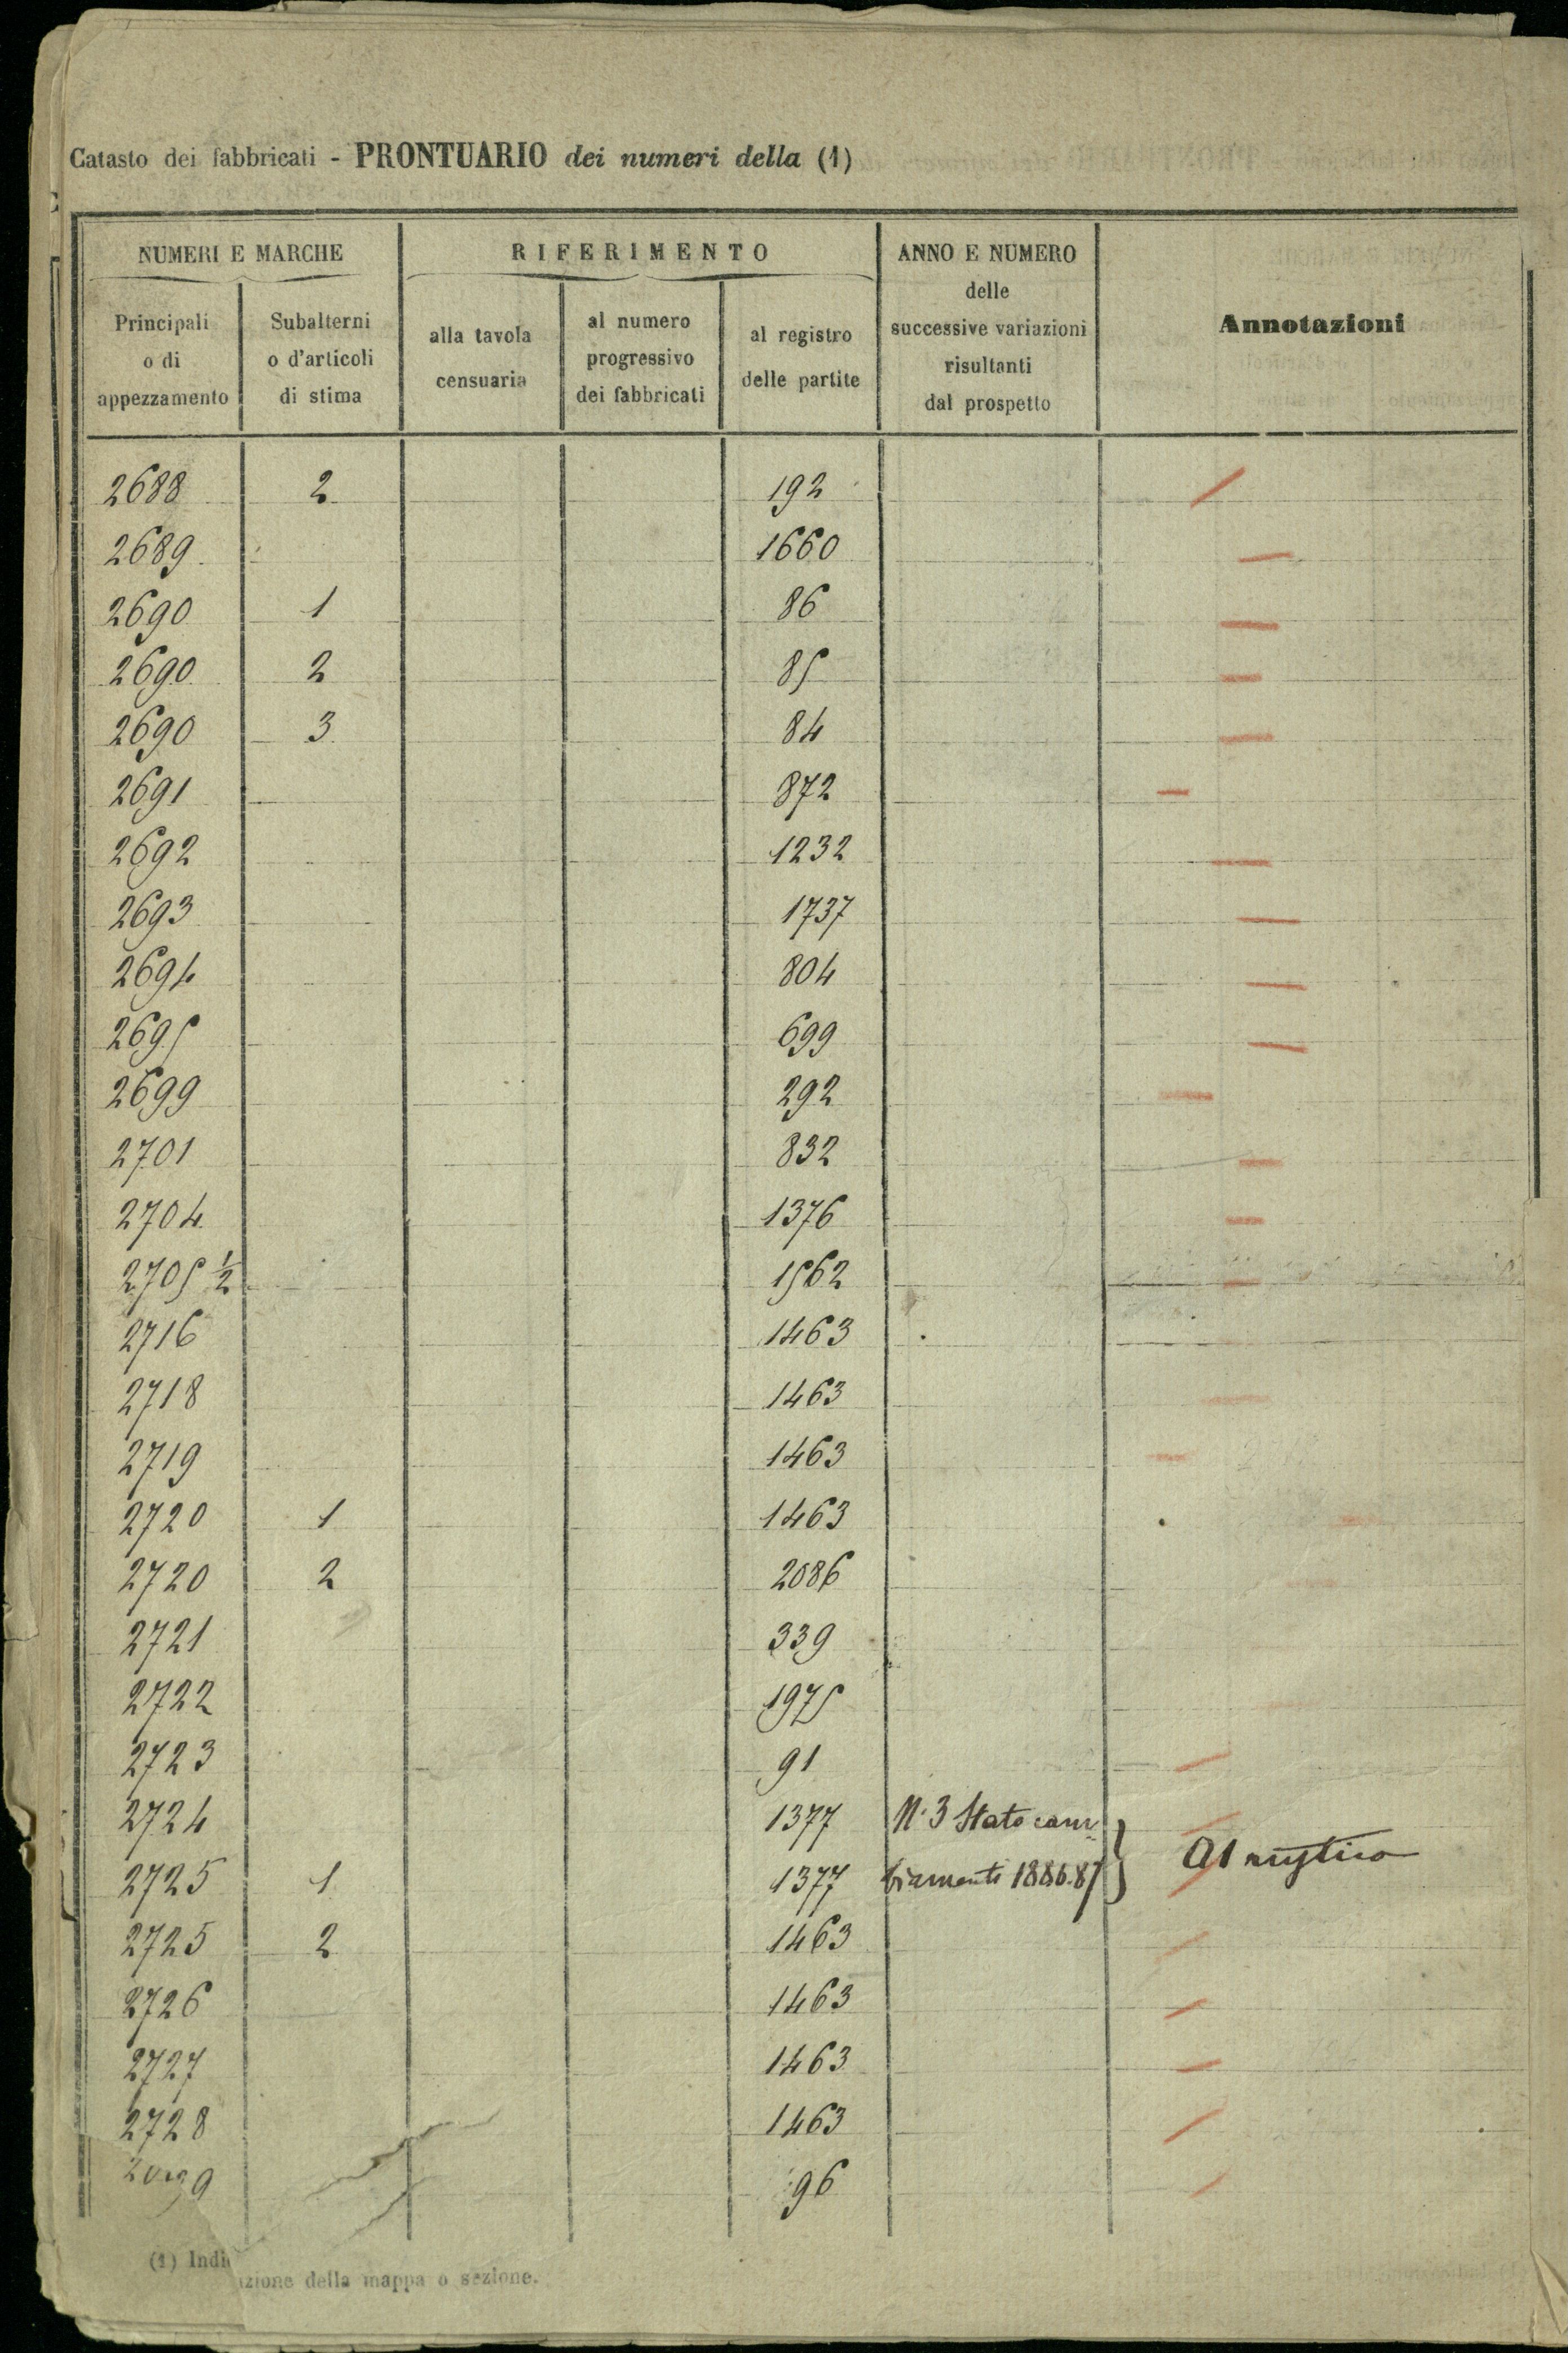 Catasto dei fabbricati - PRONTUARIO dei numeri della (1)
NUMERI E MARCHE
RIFERIMENTO
ANNO E NUMERO
delle
successive variazioni
risultanti
dal prospetto
Annotazioni
Principali
o di
appezzamento
Subalterni
o d'articoli
di stima
alla tavola
censuaria
al numero
progressivo
dei fabbricati
al registro
delle partite
2688 2 192
2689 1660
2690 1 86
2690 2 85
2690 3 84
2691 872
2692 1232
2693 1737
2694 804
2695 699
2699 292
2701 832
2704 1376
2705 1/2 1562
2716 1463
2718 1463
2719 1463
2720 1 1463
2720 2 2086
2721 339
2722 1975
2723 91
2724 1377 N. 3 Stato cam
2725 1 1377 biamenti 1886.87 } Al rustico
2725 2 1463
2726 1463
2727 1463
2728 1463
96
(1) Indi
azione della mappa o sezione.